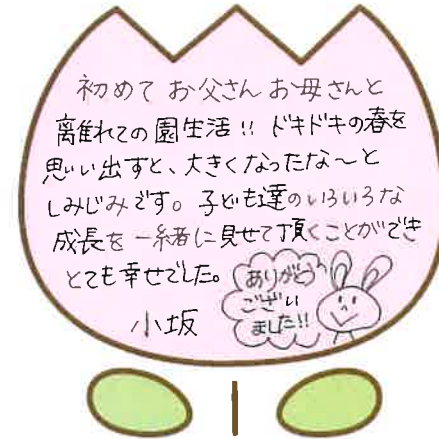 初めて お父さん お母さんと
離れての園生活!! ドキドキの春を
思い出すと、大きくなったな〜と
しみじみです。子ども達のいろいろな
成長を一緒に見せて頂くことができ
とても幸せでした。
ありがとう
ござい
ました!!
小坂